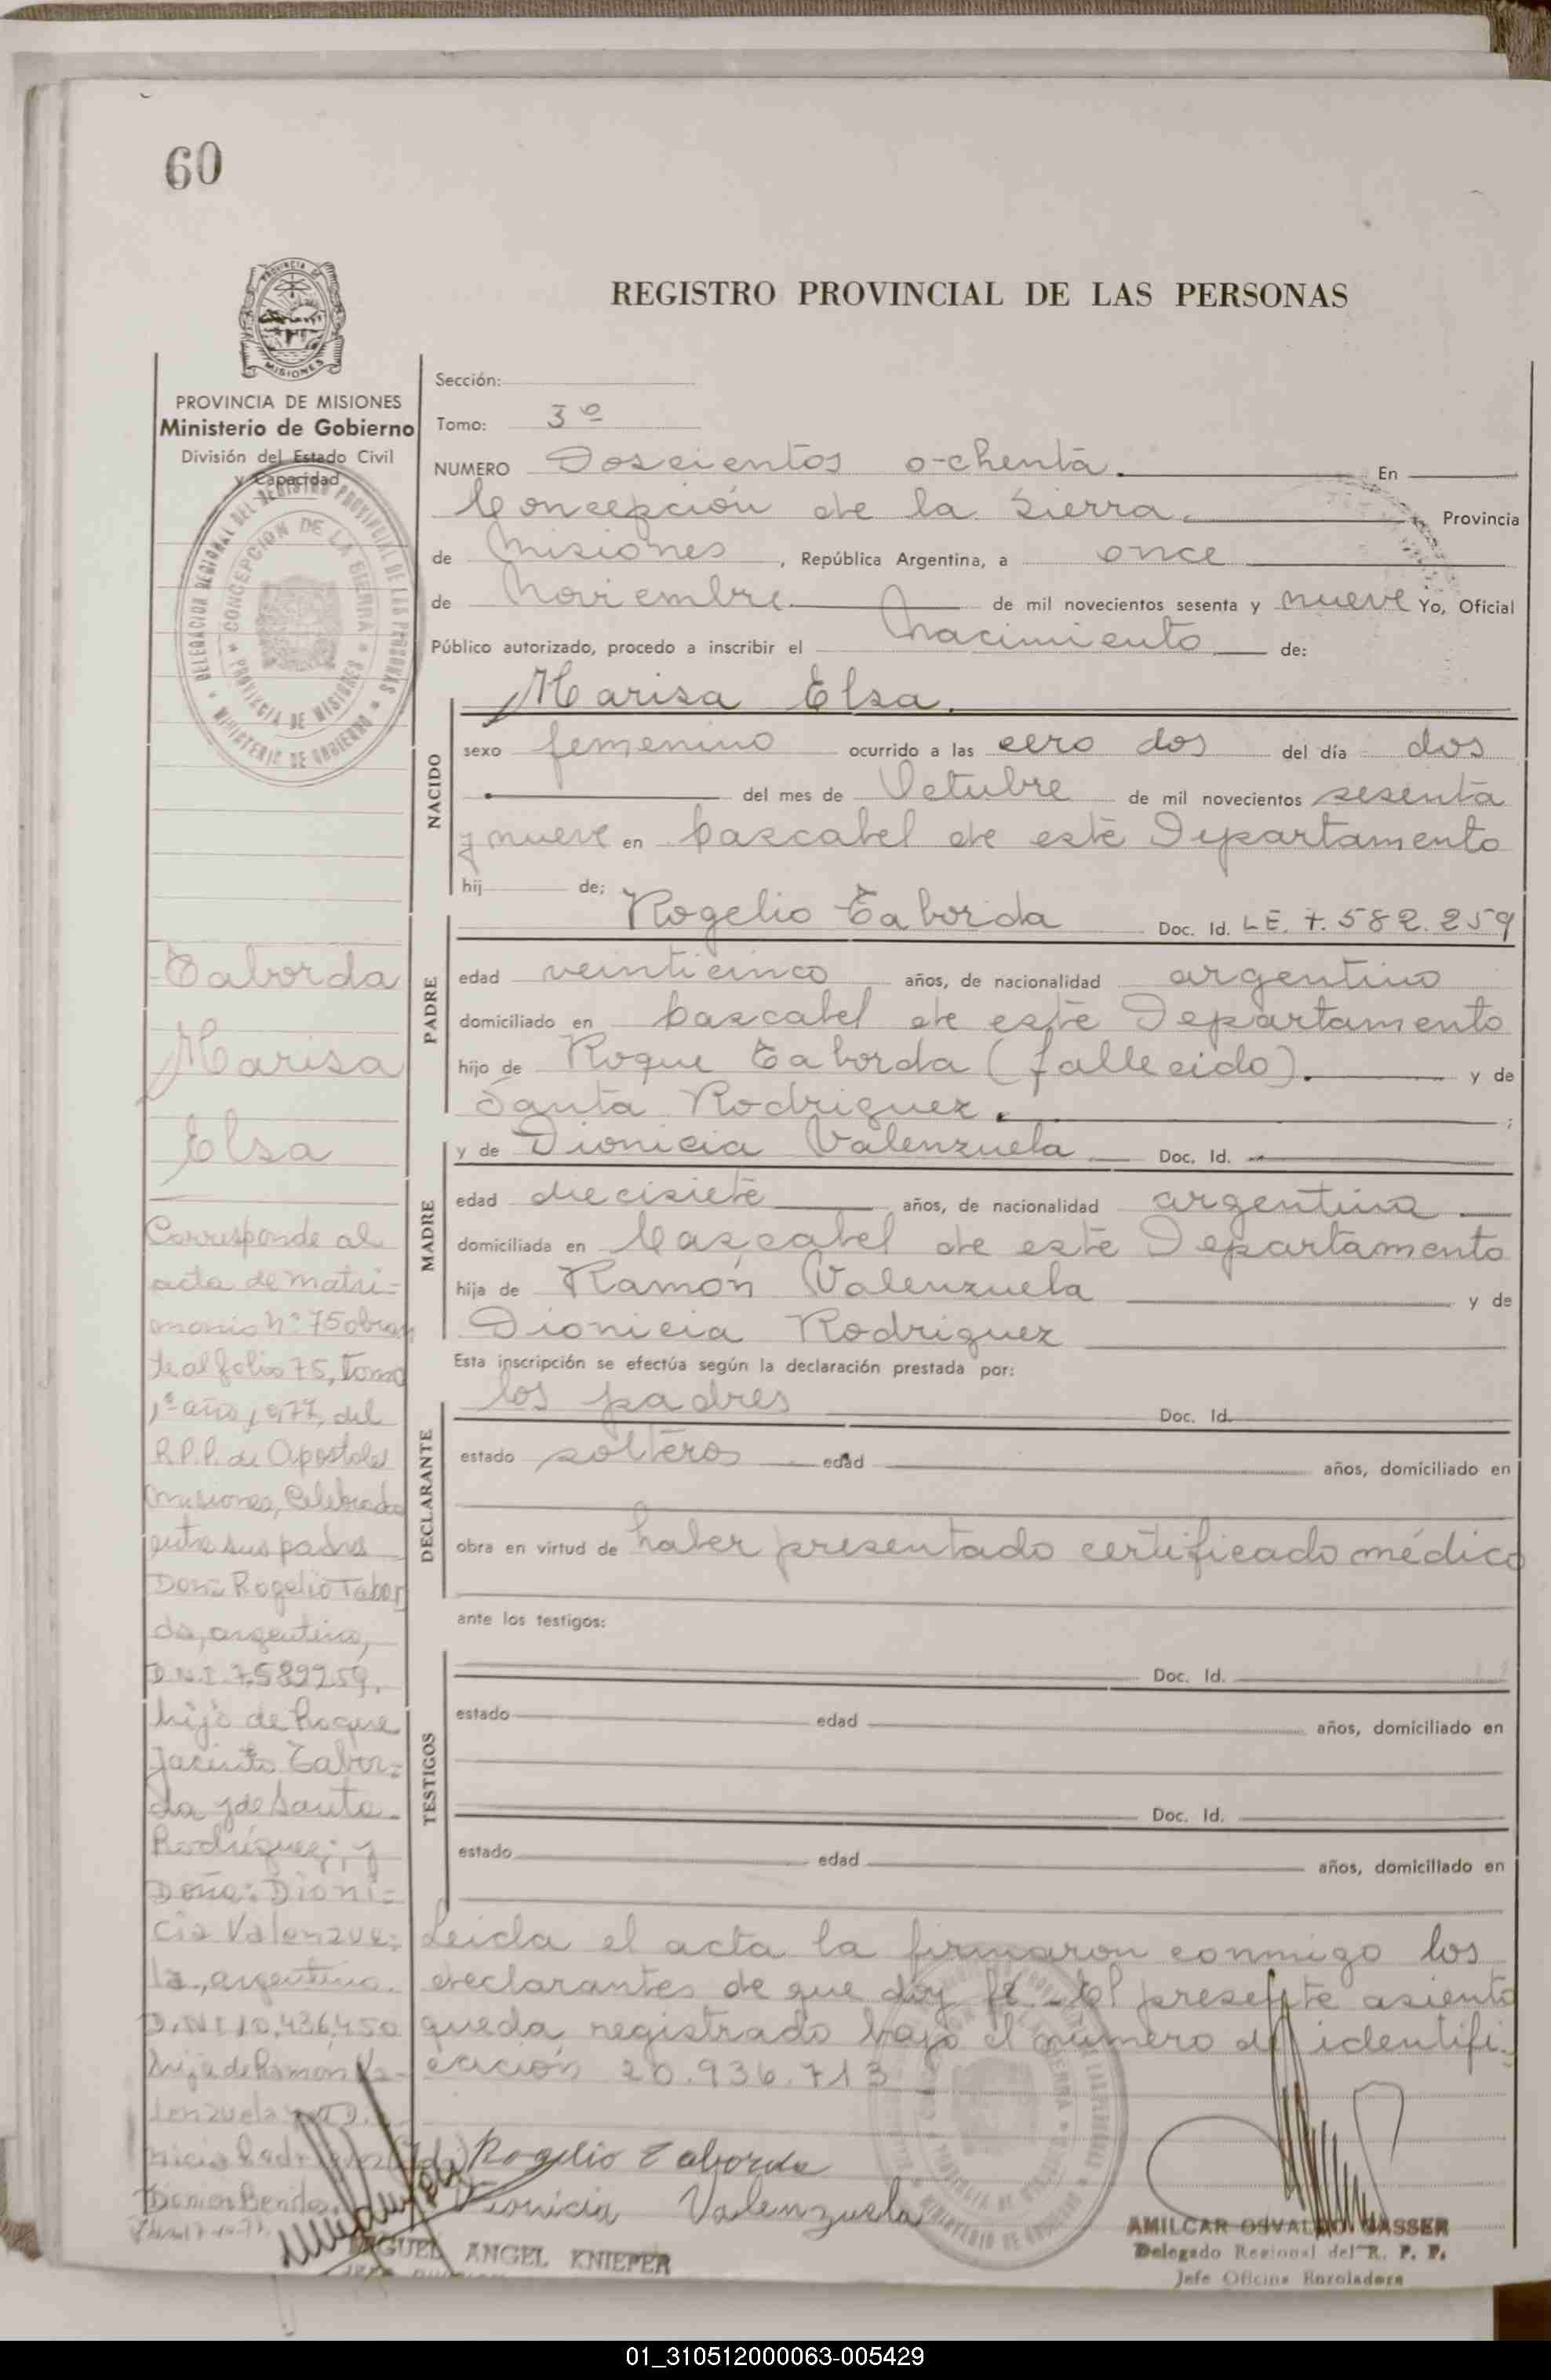 60
REGISTRO PROVINCIAL DE LAS PERSONAS
MISIONES
PROVINCIA DE MISIONES
Ministerio de Gobierno
División del Estado Civil
y Capacidad
DELEGACION REGIONAL DEL REGISTRO PROVINCIAL DE LAS PERSONAS
CONCEPCION DE LA SIERRA
PROVINCIA DE MISIONES
MINISTERIO DE GOBIERNO
Sección:
Tomo: 3º
NUMERO Doscientos ochenta. En
Concepción de la Sierra. Provincia
de Misiones, República Argentina, a once
de Noviembre de mil novecientos sesenta y nueve Yo, Oficial
Público autorizado, procedo a inscribir el Nacimiento de:
NACIDO
Marisa Elsa.
sexo femenino ocurrido a las cero dos del día dos
del mes de Octubre de mil novecientos sesenta
y nueve en Cascabel de este Departamento
hij de:
PADRE
Rogelio Taborda Doc. Id. LE. 7.582.259
edad veinticinco años, de nacionalidad argentino
domiciliado en Cascabel de este Departamento
hijo de Roque Taborda (fallecido). y de
Santa Rodriguez. ;
MADRE
y de Dionicia Valenzuela Doc. Id.
edad diecisiete años, de nacionalidad argentina
domiciliada en Cascabel de este Departamento
hija de Ramón Valenzuela y de
Dionicia Rodriguez
Esta inscripción se efectúa según la declaración prestada por:
DECLARANTE
los padres Doc. Id.
estado solteros edad años, domiciliado en
obra en virtud de haber presentado certificado médico
ante los testigos:
TESTIGOS
Doc. Id.
estado edad años, domiciliado en
Doc. Id.
estado edad años, domiciliado en
Leida el acta la firmaron conmigo los
declarantes de que doy fé. El presente asiento
queda registrado bajo el número de identifi-
cación 20.936.713
Rogelio Taborda
Dionicia Valenzuela
Taborda
Marisa
Elsa
Corresponde al
acta de matri-
monio Nº 75 obran
te al folio 75, tomo
1º año 1977, del
R.P.P. de Apostoles
Misiones, Celebrado
entre sus padres
Don: Rogelio Tabor
da, argentino,
D.N.I. 7.582259,
hijo de Roque
Jacinto Tabor-
da y de Santa
Rodríguez; y
Doña: Dioni-
cia Valenzue-
la, argentina.
D.N.I 10,436,450
hija de Ramón Va-
lenzuela
MIGUEL ANGEL KNIEPER
AMILCAR OSVALDO GASSER
Delegado Regional del R. P. P.
Jefe Oficina Enroladora
01_310512000063-005429